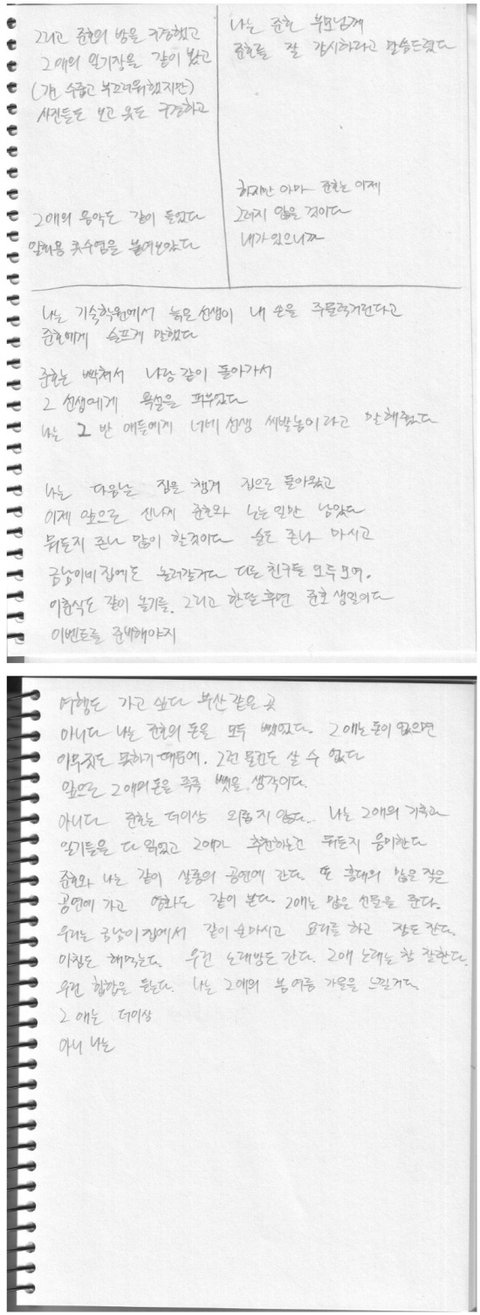 그리고 준호의 방을 구경했고
그애의 일기장을 같이 봤고
(걘 수줍고 부끄러워했지만)
사진들도 보고 옷도 구경하고
그애의 음악도 같이 들었다
콧수염을 붙여보았다
나는 준호 부모님께
준호를 잘 감시하라고 말씀드렸다
하지만 아마 준호는 이제
그러지 않을 것이다
내가 있으니까
나는 기숙학원에서 늙은 선생이 내 손을 주물럭거린다고
준호에게 슬프게 말했다
준호는 빡쳐서 나랑 같이 돌아가서
그 선생에게 욕설을 퍼부었다
나는 그 반 애들에게 너네 선생 씨발놈이라고 말해줬다
나는 다음날 짐을 챙겨 집으로 돌아왔고
이제 앞으로 신나게 준호와 노는 일만 남았다
뭐든지 존나 많이 할것이다 술도 존나 마시고
금남이네 집에도 놀러갈거다 다른 친구들 모두모여.
이춘식도 같이 놀기를. 그리고 한달 후면 준호 생일이다
이벤트를 준비해야지
여행도 가고 싶다 부산 같은 곳
아니다 나는 준호의 돈을 모두 뺏었다. 그애는 돈이 없으면
아무짓도 못하기 때문에. 그런 물건도 살 수 없다
앞으로 그애의 돈을 족족 뺏을 생각이다.
아니다 준호는 더이상 외롭지 않다. 나는 그애의 기록과
일기들을 다 읽었고 그애가 추천하는건 뭐든지 음미한다
준호와 나는 같이 살롱의 공연에 간다. 또 홍대의 많은 잦은
공연에 가고 영화도 같이 본다. 그애는 많은 선물을 준다.
우리는 금남이집에서 같이 술마시고 요리를 하고 잠도 잔다.
아침도 해먹는다. 우린 노래방도 간다. 그애 노래는 참 잘한다.
우린 힙합을 듣는다. 나는 그애의 봄여름 가을을 느낄거다.
그애는 더이상
아니 나는